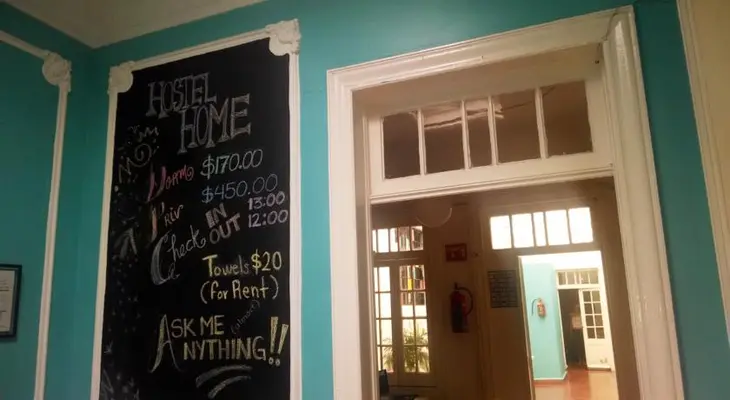 HOSTEL
HOME
Dorm $170.00
Priv $450.00
Check IN 13:00
OUT 12:00
Towels $20
(For Rent)
(almost)
ASK ME
ANYTHING!!